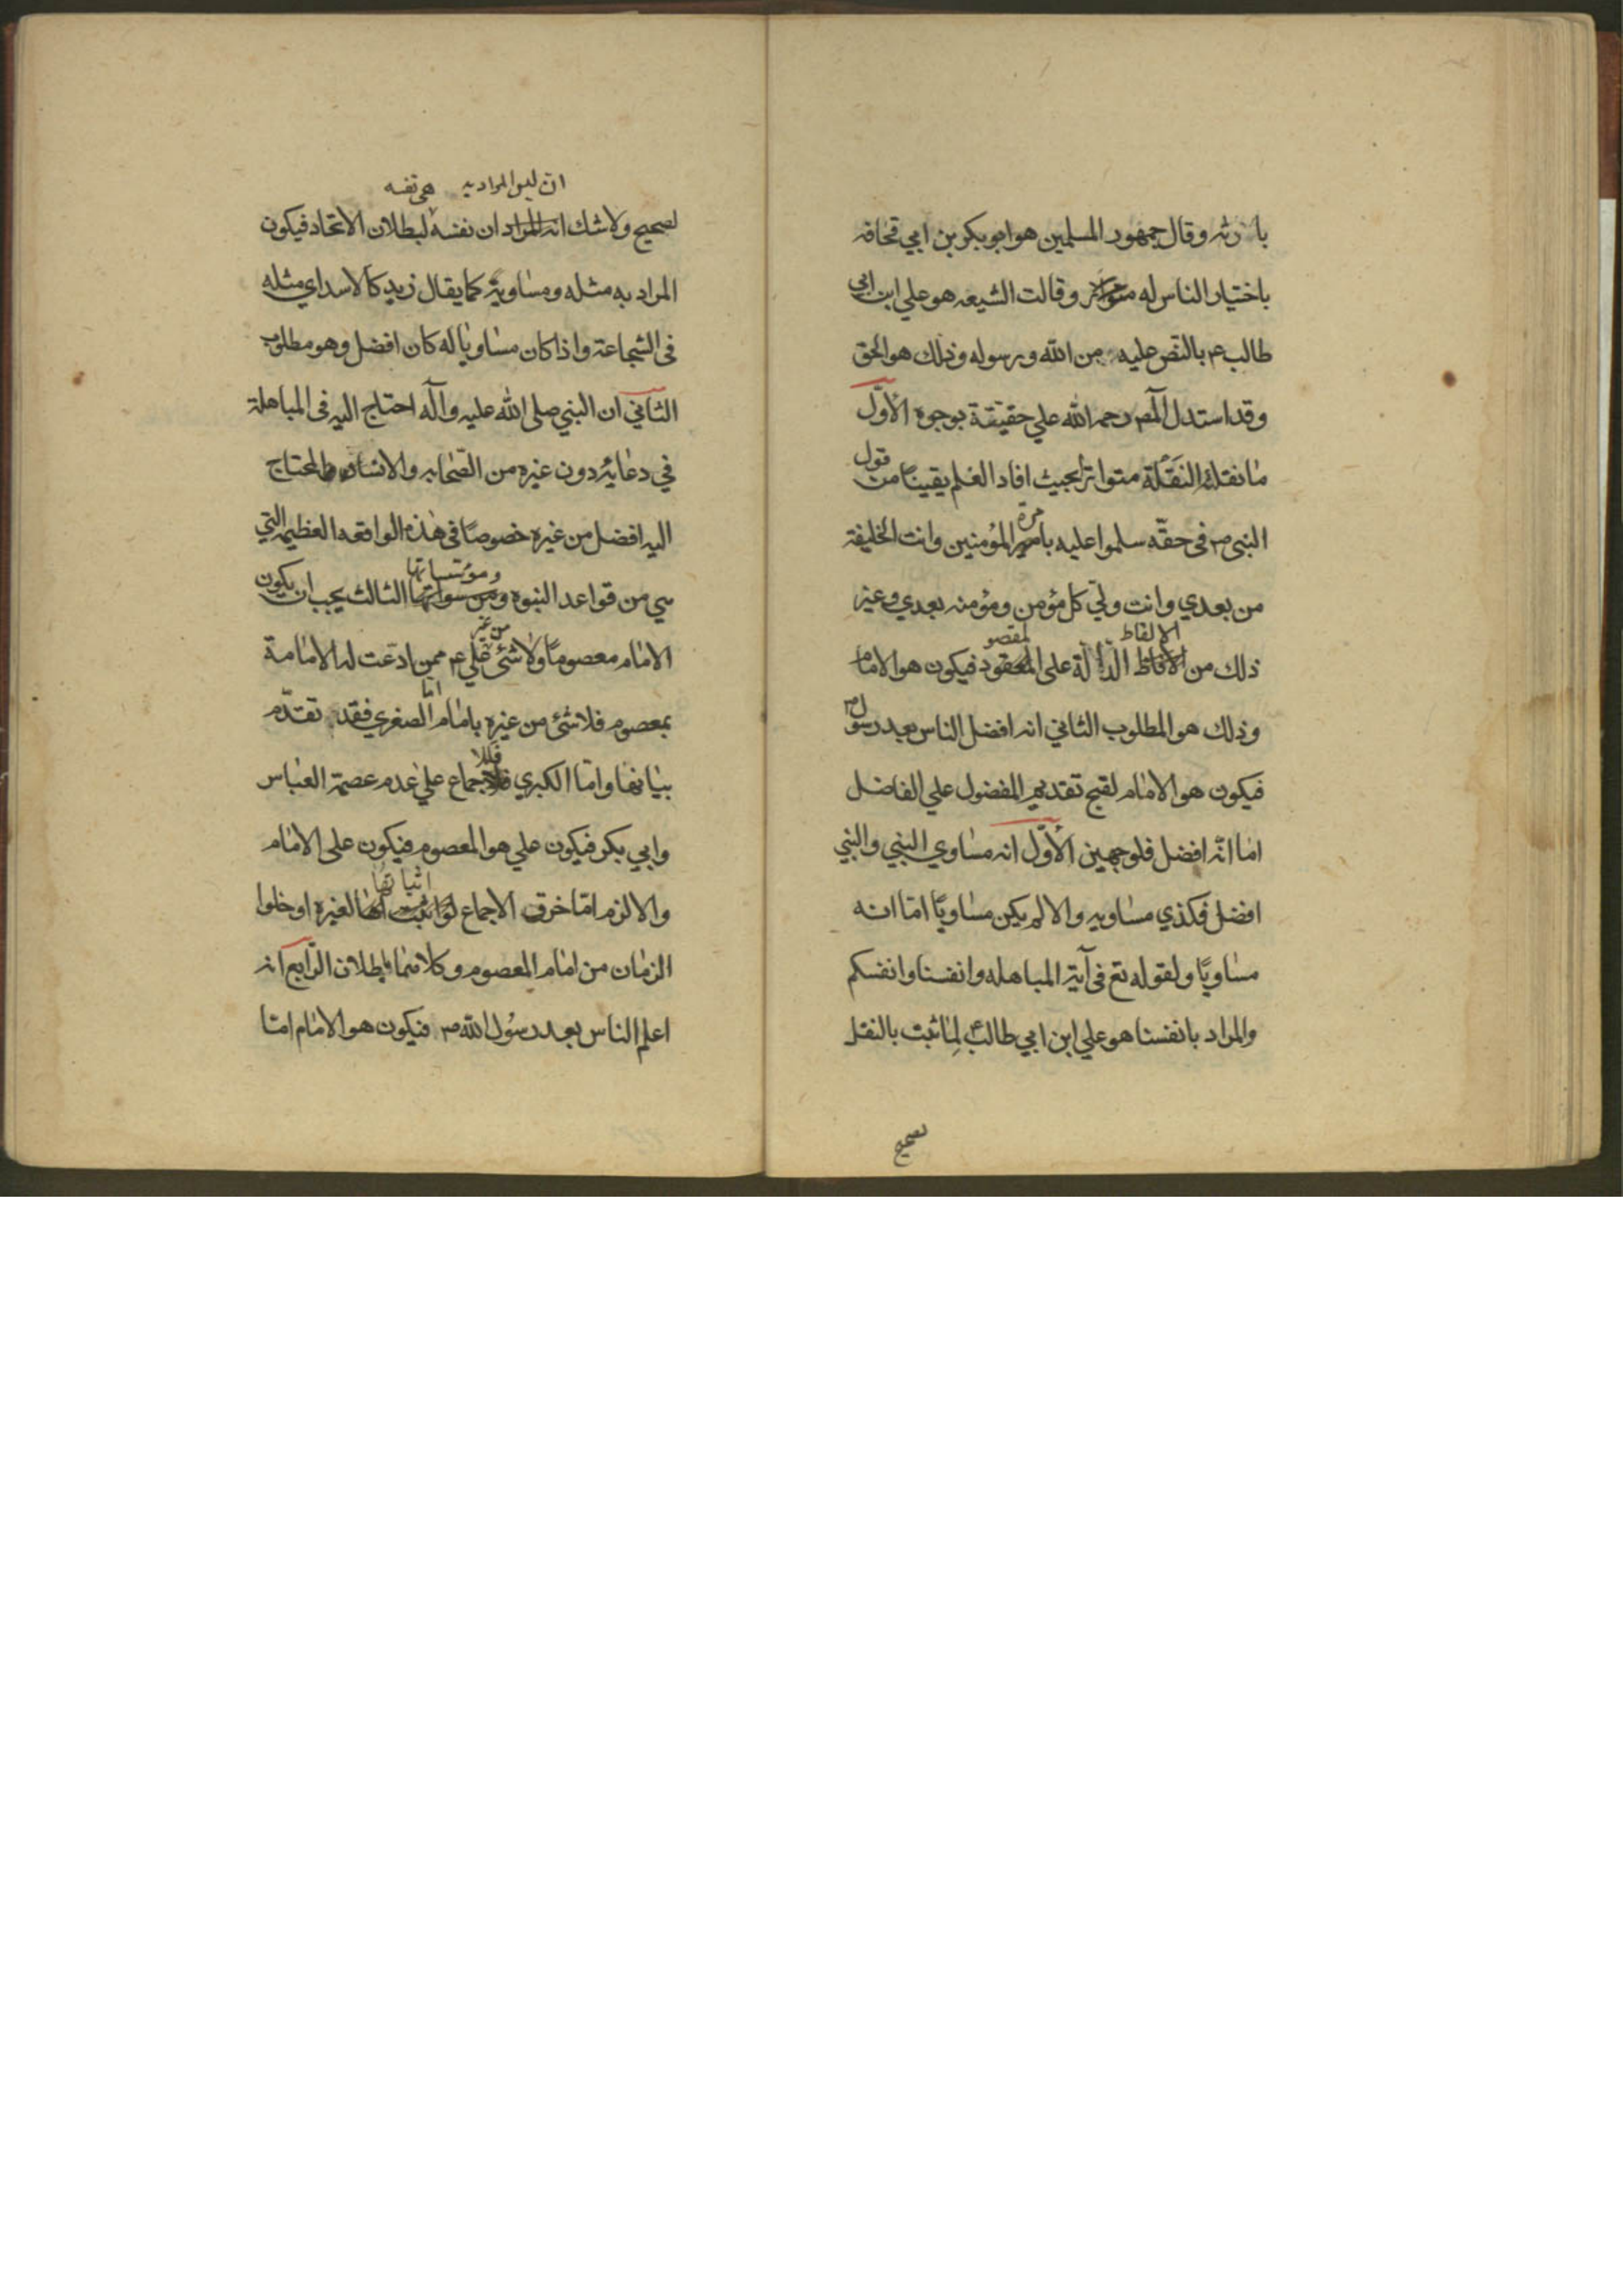 بارثه وقال جمهور المسلمين هو ابو بكر بن ابي قحافه
باختيار الناس له وقالت الشيعه هو علي ابن ابي
طالب ع بالنص عليه من الله ورسوله وذلك هو الحق
وقد استدل المص رحمه الله علي حقيقة بوجوه الأوّل
ما نقلته النقلة متواترا بحيث افاد العلم يقينا من قول
النبي ص في حقّه سلموا عليه بامرة المؤمنين وانت الخليفة
من بعدي وانت وليّ كل مؤمن ومؤمنه بعدي وغير
ذلك من الالفاظ الدالة على المقصود فيكون هو الامام
وذلك هو المطلوب الثاني انه افضل الناس بعد رسول
فيكون هو الامام لقبح تقديم المفضول علي الفاضل
اما انّه افضل فلوجهين الأوّل انه مساوي النبي والنبي
افضل فكذي مساويه والا لم يكن مساويًا امّا انه
مساويًا ولقوله تع في آية المباهله وانفسنا وانفسكم
والمراد بانفسنا هو علي ابن ابي طالبع لِما ثبت بالنقل
صحيح
ان ليس المراد به هي نفسه
لصحيح ولا شك انه المراد ان نفسه لبطلان الاتحاد فيكون
المراد به مثله ومساويه كما يقال زيد كالاسد اي مثله
في الشجاعة واذا كان مساويا له كان افضل وهو مطلوب
الثاني ان النبي صلى الله عليه وآله احتاج اليه في المباهلة
في دعائه دون غيره من الصّحابه والانساب والمحتاج
اليه افضل من غيره خصوصًا في هذه الواقعه العظيمه التي
هي من قواعد النبوه ومؤسساتها الثالث يجب ان يكون
الامام معصومًا ولا شئ من غير علي ع ممن ادّعت له الامامة
بمعصوم فلا شئ من غيره بامام امّا الصغري فقد تقدّم
بيانها وامّا الكبري فللاجماع علي عدم عصمة العباس
وابي بكر فيكون علي هو المعصوم فيكون على الامام
والا لزم امّا خرق الاجماع لو اثباتها لغيره او خلوا
الزمان من امام المعصوم وكلاهما باطلان الرّابع انه
اعلم الناس بعد رسُول الله ص فيكون هو الامام امّا